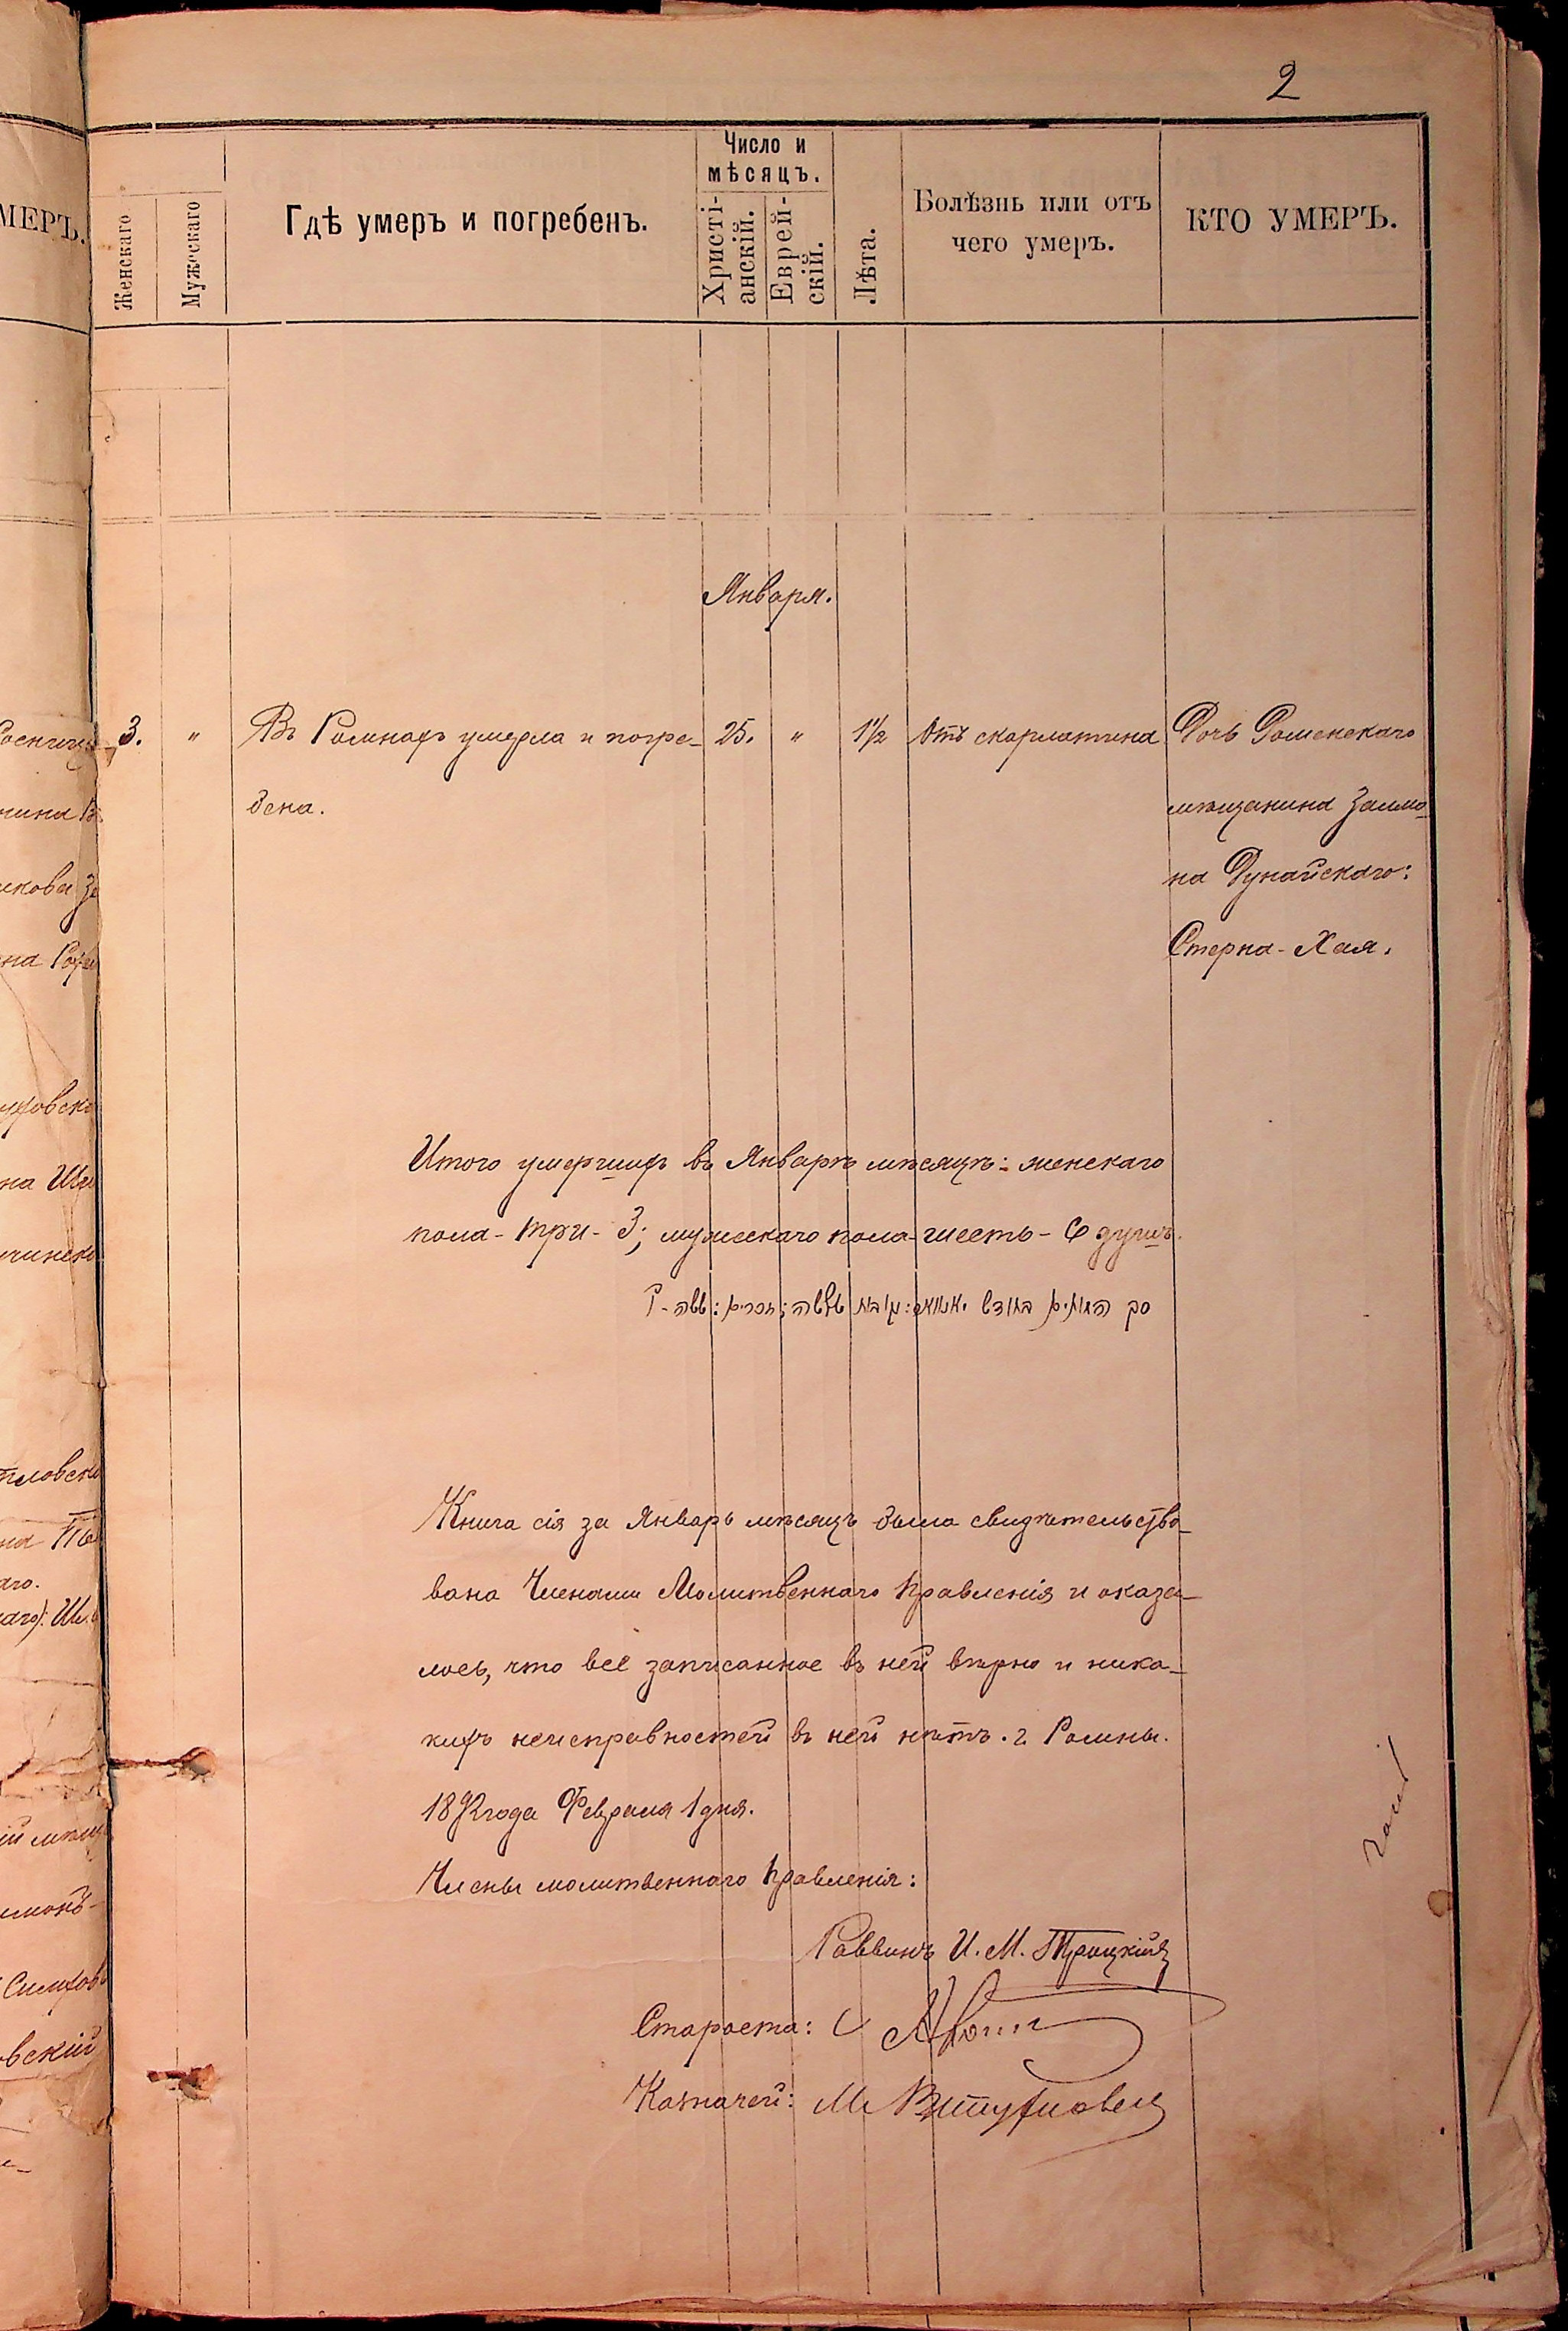 2
Число и
мѣсяцъ.
Женскаго
Мужескаго
Гдѣ умеръ и погребенъ.
Христі-
анскій.
Еврей-
скій.
Лѣта.
Болѣзнь или отъ
чего умеръ.
КТО УМЕРЪ.
МЕРЪ.
Января.
3. " Въ Ромнахъ умерла и погре- 25. " 1½ Отъ скарлатина Дочь Роменскаго
бена.
мѣщанина Залма-
на Дунайскаго:
Стерна-Хая.
Итого умершихъ въ Январѣ мѣсяцѣ: женскаго
пола - три - 3; мужескаго пола - шесть - 6 душъ.
סך המתים בחודש יאנואר: נקבות שלשה; זכרים: ששה - 6
Книга сія за Январь мѣсяцъ была свидѣтельство-
вана Членами Молитвеннаго Правленія и оказа-
лось, что всё записанное въ ней вѣрно и ника-
кихъ неисправностей въ ней нѣтъ. г. Ромны.
1892 года Февраля 1 дня.
Члены молитвеннаго Правленія:
Раввинъ И. М. Троцкій
Староста:
Казначей: М